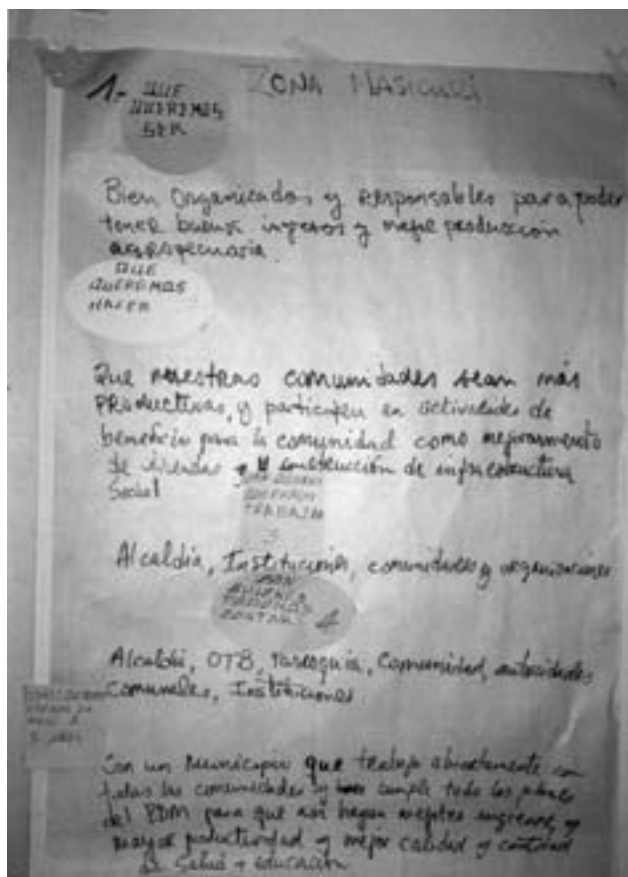 1- QUE
QUEREMOS
SER
ZONA MASICURI
Bien Organizados y Responsables para poder
tener buenos ingresos y mejor produccion
agropecuaria.
QUE
QUEREMOS
HACER
Que nuestras comunidades sean más
PRODUCTIVAS, y participen en actividades de
beneficio para la comunidad como mejoramiento
de viviendas y construcción de infraestructura
Social
QUEREMOS
TRABAJAR
Alcaldia, Instituciones, comunidades y organizaciones
CON
QUIENES
PODEMOS
CONTAR
Alcaldia, OTB, Parroquia, Comunidad, autoridades
Comunales, Instituciones.
Con un Municipio que trabaje abiertamente con
todas las comunidades y cumpla todo los planes
del PDM para que asi hayan mejores ingresos y
mayor productividad y mejor calidad y cantidad
de Salud + educación